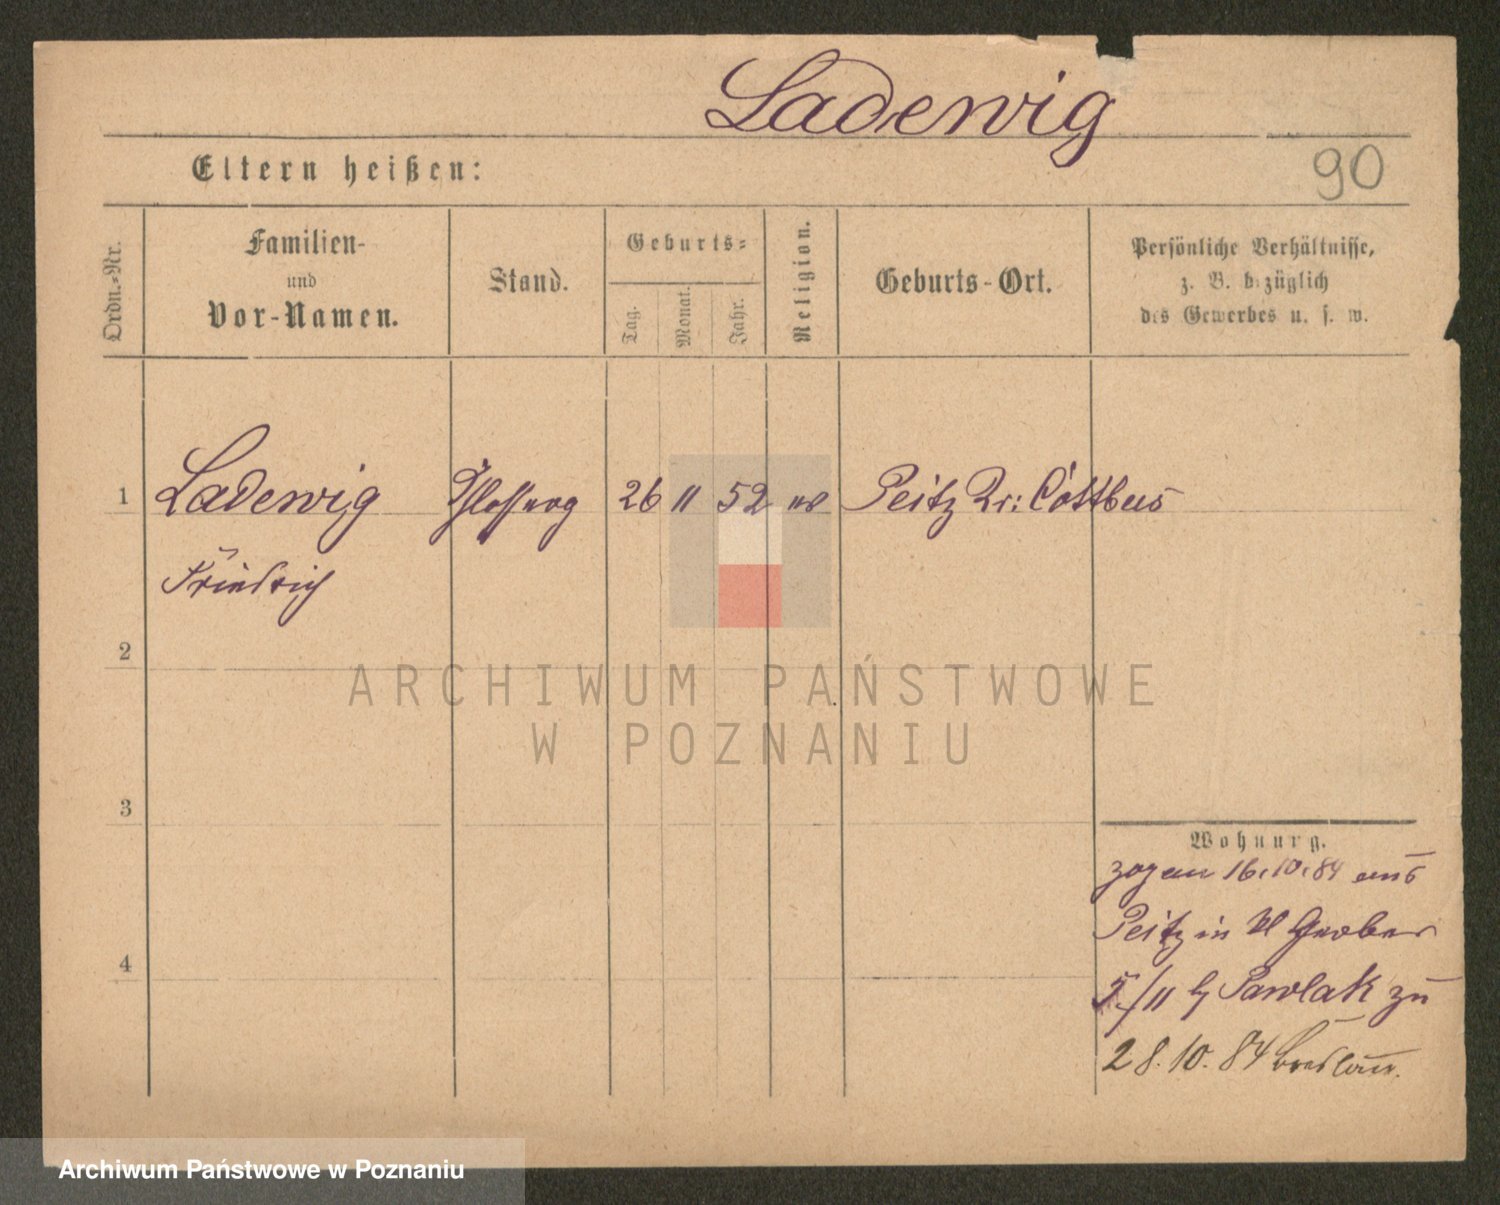 Ladewig
Eltern heißen:
90
Ordn.-Nr.
Familien-
und
Vor-Namen.
Stand.
Geburts-
Tag.
Monat.
Jahr.
Religion.
Geburts-Ort.
Persönliche Verhältnisse,
z. B. bezüglich
des Gewerbes u. s. w.
1 Ladewig 26 11 52 Peitz Kr: Cottbus
Friedrich
2
ARCHIWUM PAŃSTWOWE
W POZNANIU
3
Wohnung.
zog am 16.10.84 aus
Peitz in Kl Gerber
5/11 Pawlak zu
4
28.10.84 Breslau.
Archiwum Państwowe w Poznaniu